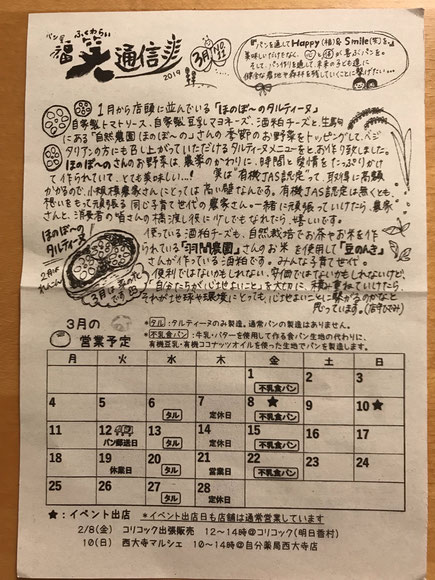 パン屋
ふくわらい
福笑通信
2019
3月
『パンを通してHappy(福)&Smile(笑)を』
美味しいだけでなく、
が喜ぶパンを。
そして、パン作りを通して、未来の子ども達に
健全な農地や森林を残していくことに繋げたい…
1月から店頭に並んでいる「ほのぼ〜のタルティーヌ」
自家製トマトソース、自家製豆乳マヨネーズ、酒粕チーズと、生駒
にある"自然農園ほのぼ〜の"さんの季節のお野菜をトッピングして、ベジ
タリアンの方にも召し上がっていただけるタルティーヌメニューをとお作り致しました。
ほのぼ〜のさんのお野菜は、農薬のかわりに、時間と愛情をたっぷりかけ
て作られていて、とても美味しい…! 実は"有機JAS認定"って、取得に高額
かかるので、小規模農家さんにとっては高い壁なんです。有機JAS認定は無くとも、
想いをもって頑張る同じ子育て世代の農家さん。一緒に頑張っていけたら、農家
さんと、消費者の皆さんの橋渡し役に少しでもなれたら、嬉しいです。
ほのぼ〜の
タルティーヌ
2月は
れんこん
3月は
です
使っている酒粕チーズも、自然栽培でお茶やお米を作
られている「羽間農園」さんのお米を使用して「豆のんき」
さんが作っている酒粕です。みんな子育て世代。
便利ではないかもしれない、安価ではないかもしれないけど、
"自分たちが心地よいこと"を大切に、積み重ねていけたら、
それが地球や環境にとっても、心地よいことに繋がるのかなと
思っています。(店主ひとみ)
3月の
営業予定
タル:タルティーヌのみ製造。通常パンの製造はありません。
*不乳食パン:牛乳・バターを使用して作る食パン生地の代わりに、
有機豆乳・有機ココナッツオイルを使った生地でパンを製造します。
月 火 水 木 金 土 日
1 2 3
不乳食パン
4 5 6 7 8★ 9 10★
タル 定休日 不乳食パン
11 12 13 14 15 16 17
パン郵送日 タル 定休日 不乳食パン
18 19 20 21 22 23 24
休業日 タル 営業日 不乳食パン
25 26 27 28
タル 定休日
★:イベント出店 *イベント出店日も店舗は通常営業しています
2/8(金) コリコック出張販売 12〜14時@コリコック(明日香村)
10(日) 西大寺マルシェ 10〜14時@自分薬局西大寺店